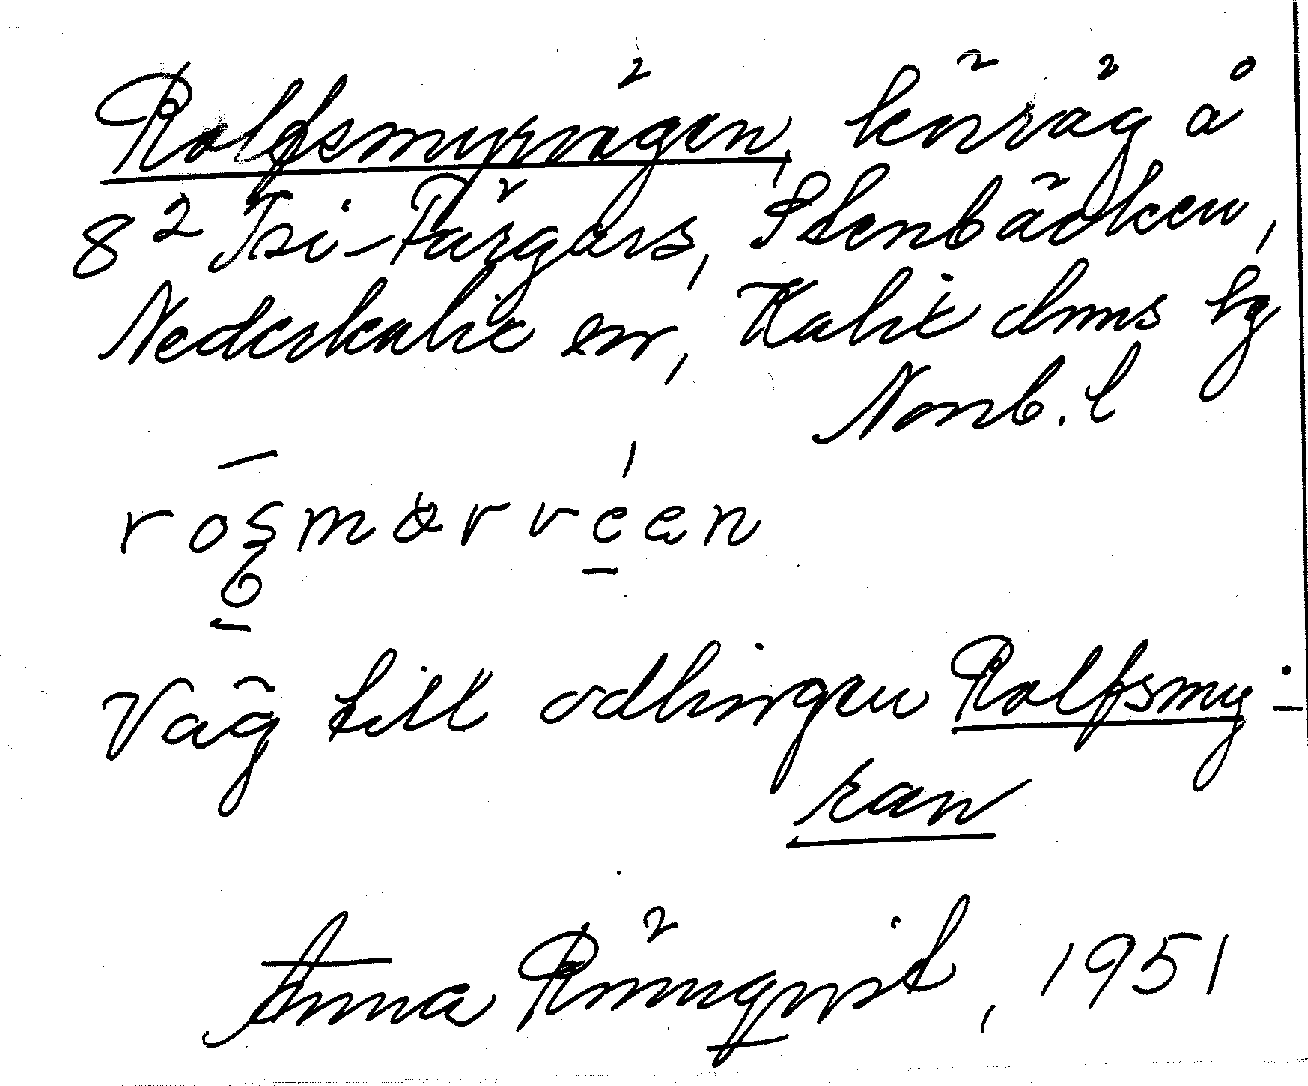 Rolfsmyrvägen, körväg å
8² Isi-Färgars, Stenbäcken,
Nederkalix sn, Kalix dms hg
Norrb. l
rosmørveen
Väg till odlingen Rolfsmy-
ran
Anna Rönnqvist, 1951